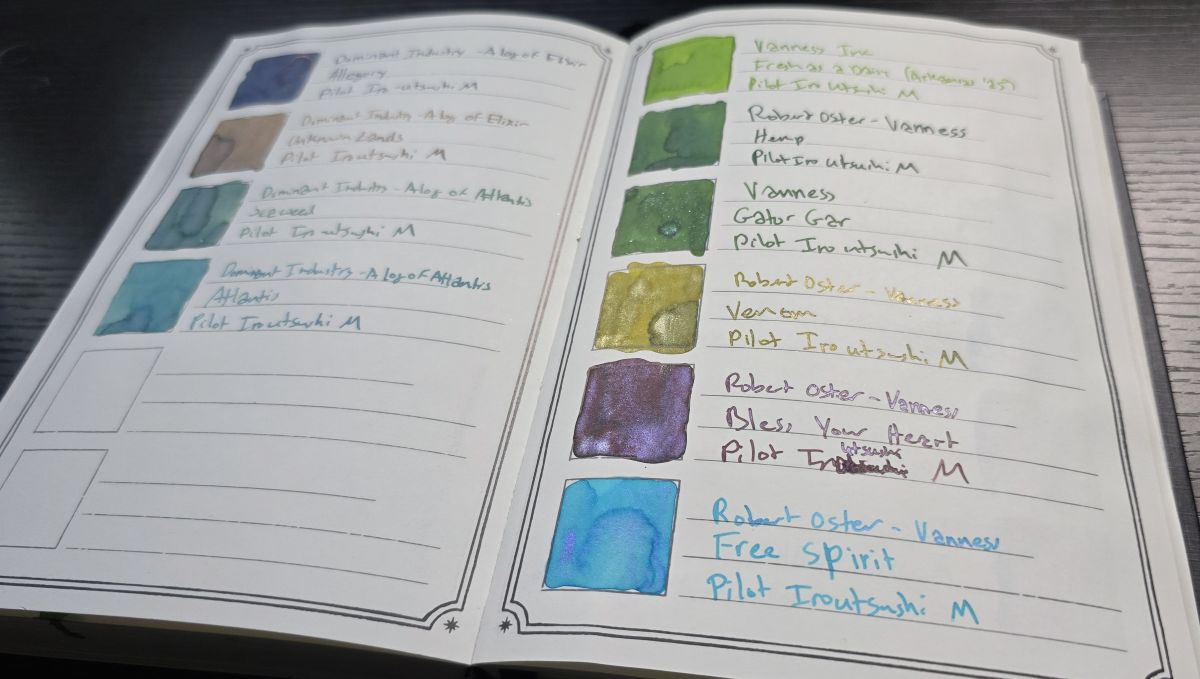 Dominant Industry - A log of Elixir
Allegory
Pilot Iro-utsushi M
Dominant Industry - A log of Elixir
Unknown Lands
Pilot Iroutsushi M
Dominant Industry - A log of Atlantis
Seaweed
Pilot Iro utsushi M
Dominant Industry - A log of Atlantis
Atlantis
Pilot Iroutsushi M
Vanness Inc
Fresh as a Daisy (Arkansas '25)
Pilot Iro Utsushi M
Robert Oster - Vanness
Hemp
Pilot Iro utsushi M
Vanness
Gator Gar
Pilot Iro utsushi M
Robert Oster - Vanness
Venom
Pilot Iro utsushi M
Robert Oster - Vanness
Bless Your Heart
Pilot Iro utsushi M
Robert Oster - Vanness
Free Spirit
Pilot Iroutsushi M